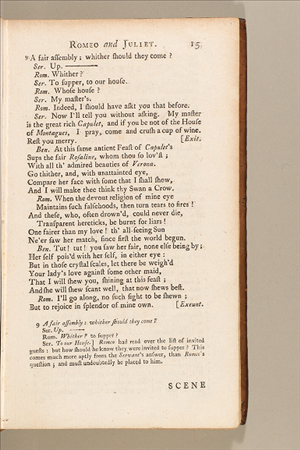 ROMEO and JULIET. 15
9 A fair assembly; whither should they come?
Ser. Up. ———
Rom. Whither?
Ser. To supper, to our house.
Rom. Whose house?
Ser. My master's.
Rom. Indeed, I should have askt you that before.
Ser. Now I'll tell you without asking. My master
is the great rich Capulet, and if you be not of the House
of Montagues, I pray, come and crush a cup of wine.
Rest you merry. [Exit.
Ben. At this same antient Feast of Capulet's
Sups the fair Rosaline, whom thou so lov'st;
With all th' admired beauties of Verona.
Go thither, and, with unattainted eye,
Compare her face with some that I shall show,
And I will make thee think thy Swan a Crow.
Rom. When the devout religion of mine eye
Maintains such falsehoods, then turn tears to fires!
And these, who, often drown'd, could never die,
Transparent hereticks, be burnt for liars!
One fairer than my love! th' all-seeing Sun
Ne'er saw her match, since first the world begun.
Ben. Tut! tut! you saw her fair, none else being by;
Her self pois'd with her self, in either eye:
But in those crystal scales, let there be weigh'd
Your lady's love against some other maid,
That I will shew you, shining at this feast;
And she will shew scant well, that now shews best.
Rom. I'll go along, no such sight to be shewn;
But to rejoice in splendor of mine own. [Exeunt.
9 A fair assembly: whither should they come?
Ser. Up. ———
Rom. Whither? to supper?
Ser. To our House.] Romeo had read over the list of invited
guests: but how should he know they were invited to supper? This
comes much more aptly from the Servant's answer, than Romeo's
question; and must undoubtedly be placed to him.
SCENE